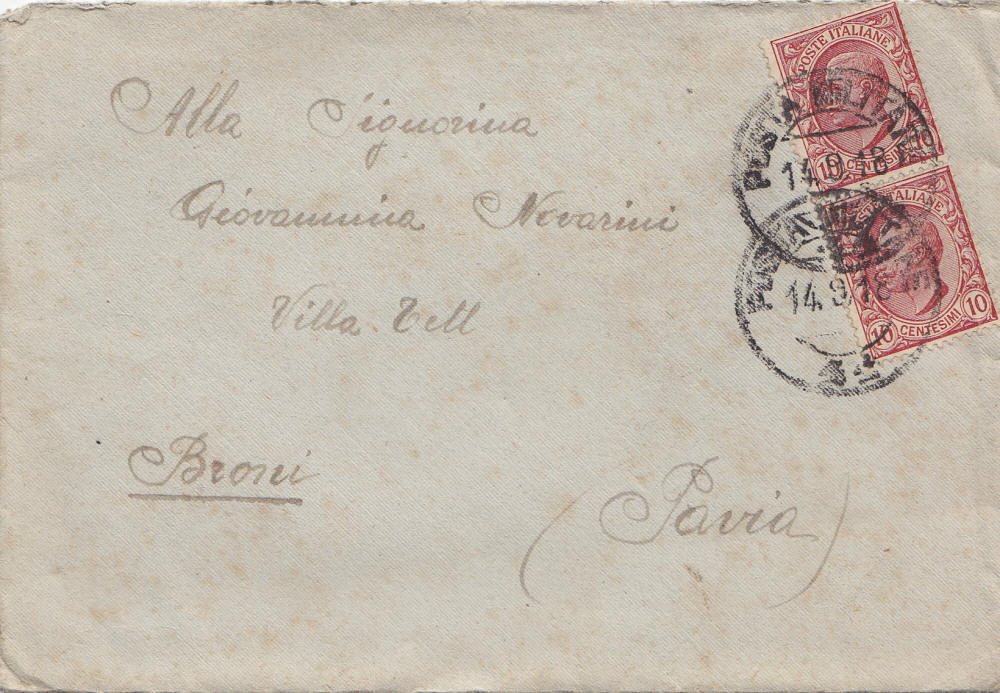 Alla Signorina
Giovannina Novarini
Villa Tell
Broni
(Pavia)
POSTE ITALIANE
10 CENTESIMI 10
POSTA MILITARE
14.9.18
POSTE ITALIANE
10 CENTESIMI 10
POSTA MILITARE
14.9.18